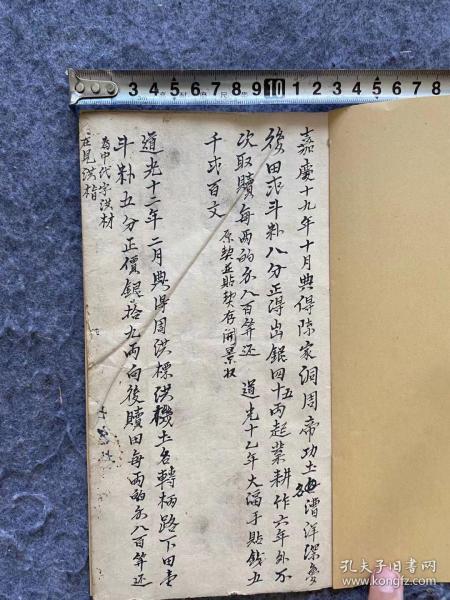 嘉慶十九年十月典得陈家洞周帝功土名漕洋深
後田弍斗粆八分正得出銀四十五两起業耕作六年外不
次取贖每两的尔八百算还 道光十乙年大滔手貼钱五
千弍百文 原契並貼契存開景收
道光十二年二月典得周洪標洪機土名轉柄路下田壹
斗粆五分正價銀拾九两向後贖田每两的尔八百算还
為中代字洪材
在見洪楷
3 4 5 6 7 8 9 10 1 2 3 4 5 6 7 8
孔夫子旧书网
book.kongfz.com